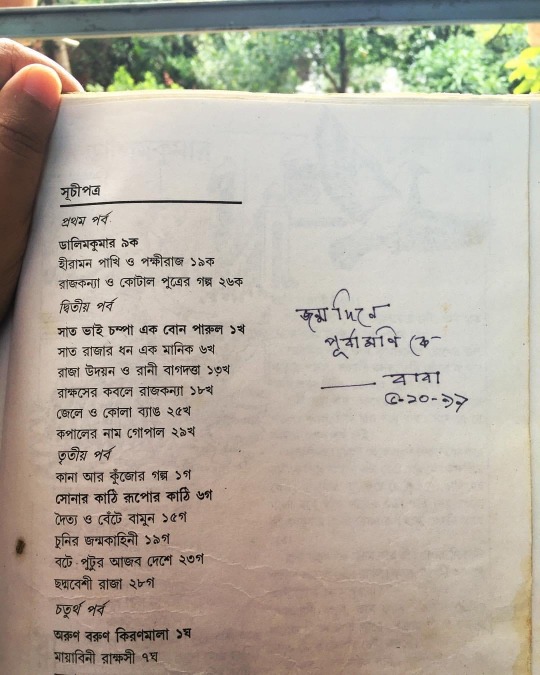 সূচীপত্র
প্রথম পর্ব
ডালিমকুমার ৯ক
হীরামন পাখি ও পক্ষীরাজ ১৯ক
রাজকন্যা ও কোটাল পুত্রের গল্প ২৬ক
দ্বিতীয় পর্ব
সাত ভাই চম্পা এক বোন পারুল ১খ
সাত রাজার ধন এক মানিক ৬খ
রাজা উদয়ন ও রানী বাগদত্তা ১৩খ
রাক্ষসের কবলে রাজকন্যা ১৮খ
জেলে ও কোলা ব্যাঙ ২৫খ
কপালের নাম গোপাল ২৯খ
তৃতীয় পর্ব
কানা আর কুঁজোর গল্প ১গ
সোনার কাঠি রূপোর কাঠি ৬গ
দৈত্য ও বেঁটে বামুন ১৫গ
চুনির জন্মকাহিনী ১৯গ
বটে পুটুর আজব দেশে ২৩গ
ছদ্মবেশী রাজা ২৮গ
চতুর্থ পর্ব
অরুণ বরুণ কিরণমালা ১ঘ
মায়াবিনী রাক্ষসী ৭ঘ
জন্মদিনে
পূর্বামণি কে
— বাবা